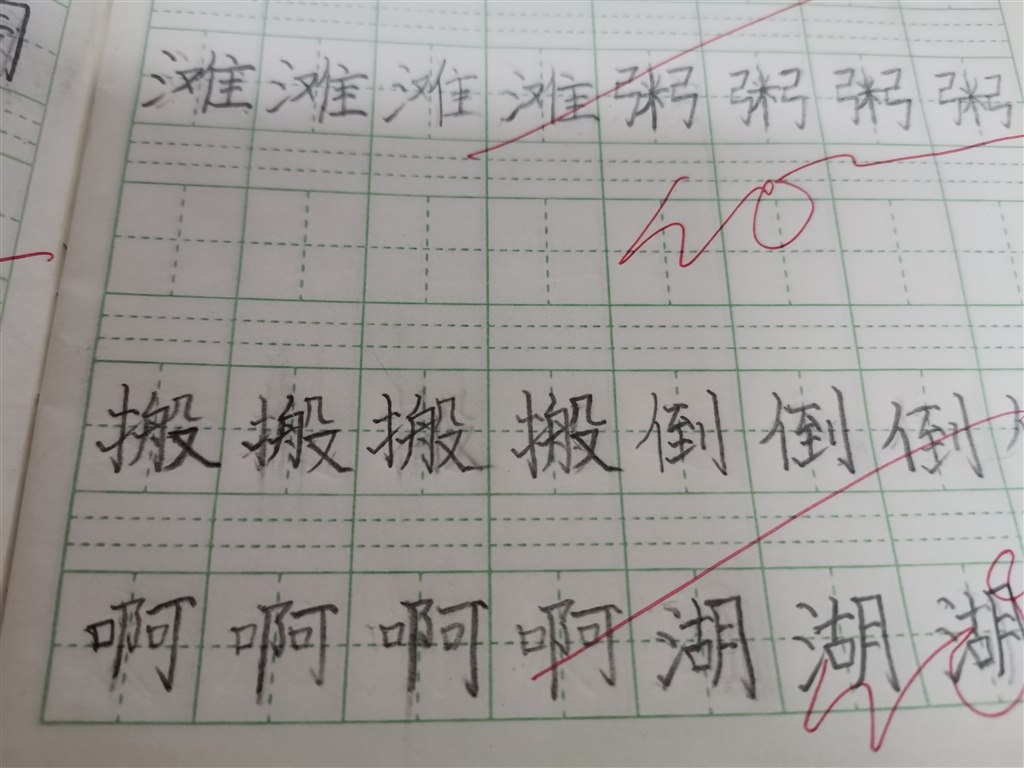 滩滩滩滩粥粥粥粥
搬搬搬搬倒倒倒
啊啊啊啊湖湖湖